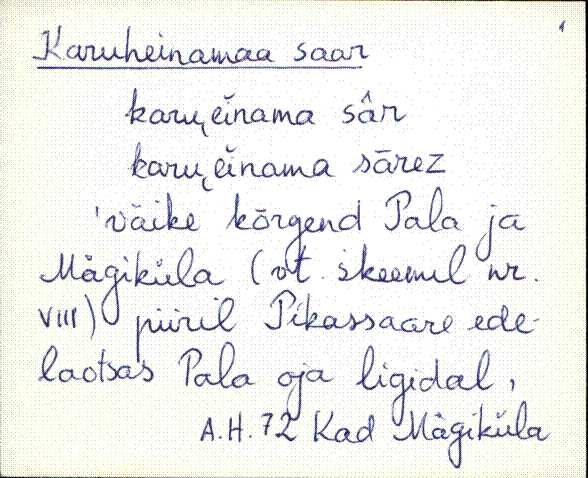 Karuheinamaa saar
karu̯eĭnama sâr
karu̯eĭnama sārez
'väike kõrgend Pala ja
Mägiküla (vt. skeemil nr.
VIII) piiril Pikassaare ede-
laotsas Pala oja ligidal,
A.H. 72 Kad Mägiküla